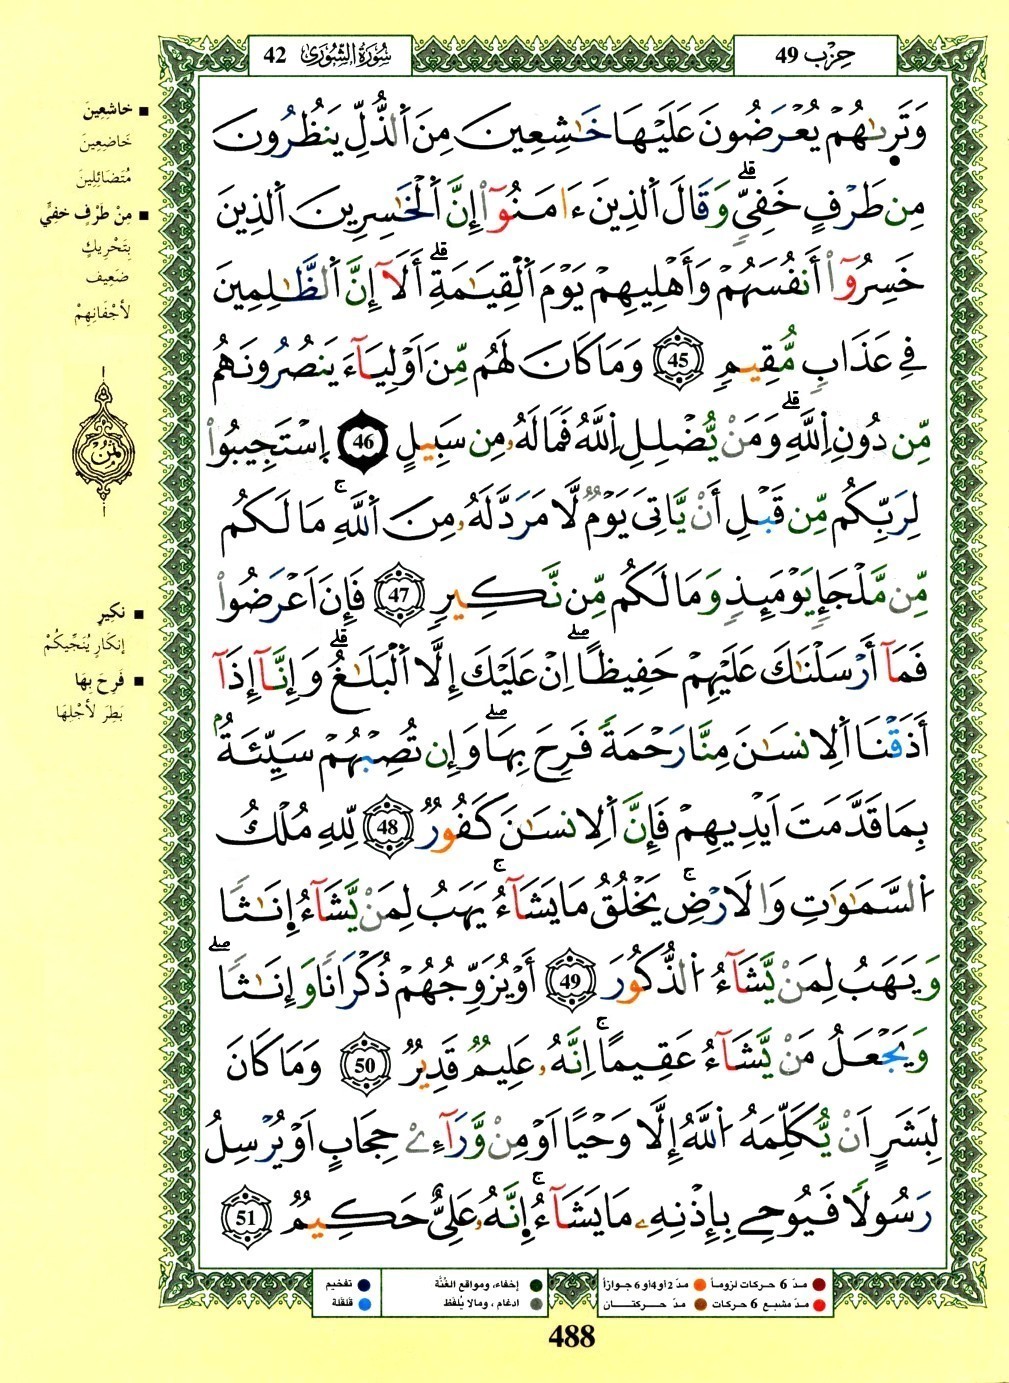 حِزْب 49
سُورَةُ الشُّورَى 42
وَتَر۪ىٰهُمْ يُعْرَضُونَ عَلَيْهَا خَٰشِعِينَ مِنَ اَ۬لذُّلِّ يَنظُرُونَ
مِن طَرْفٍ خَفِيٍّۖ وَقَالَ اَ۬لذِينَ ءَامَنُوٓاْ إِنَّ اَ۬لْخَٰسِرِينَ اَ۬لذِينَ
خَسِرُوٓاْ أَنفُسَهُمْ وَأَهْلِيهِمْ يَوْمَ اَ۬لْقِيَٰمَةِۗ أَلَآ إِنَّ اَ۬لظَّٰلِمِينَ
فِے عَذَابٖ مُّقِيمٖ 45 وَمَا كَانَ لَهُم مِّنَ اَوْلِيَآءَ يَنصُرُونَهُم
مِّن دُونِ اِ۬للَّهِۗ وَمَنْ يُّضْلِلِ اِ۬للَّهُ فَمَا لَهُۥ مِن سَبِيلٍ 46 اِ۪سْتَجِيبُواْ
لِرَبِّكُم مِّن قَبْلِ أَنْ يَّاتِيَ يَوْمٞ لَّا مَرَدَّ لَهُۥ مِنَ اَ۬للَّهِۚ مَا لَكُم
مِّن مَّلْجَإٖ يَوْمَئِذٖ وَمَا لَكُم مِّن نَّكِيرٖ 47 فَإِنَ اَعْرَضُواْ
فَمَآ أَرْسَلْنَٰكَ عَلَيْهِمْ حَفِيظاًۖ اِنْ عَلَيْكَ إِلَّا اَ۬لْبَلَٰغُۗ وَإِنَّآ إِذَآ
أَذَقْنَا اَ۬لِانسَٰنَ مِنَّا رَحْمَةٗ فَرِحَ بِهَاۖ وَإِن تُصِبْهُمْ سَيِّئَةُۢ
بِمَا قَدَّمَتَ اَيْدِيهِمْ فَإِنَّ اَ۬لِانسَٰنَ كَفُورٞ 48 لِّلهِ مُلْكُ
اُ۬لسَّمَٰوَٰتِ وَالَارْضِۚ يَخْلُقُ مَا يَشَآءُۚ يَهَبُ لِمَنْ يَّشَآءُ إِنَٰثاٗ
وَيَهَبُ لِمَنْ يَّشَآءُ اُ۬لذُّكُورَ 49 أَوْ يُزَوِّجُهُمْ ذُكْرَاناٗ وَإِنَٰثاٗۖ
وَيَجْعَلُ مَنْ يَّشَآءُ عَقِيماًۚ اِنَّهُۥ عَلِيمٞ قَدِيرٞ 50 وَمَا كَانَ
لِبَشَرٍ اَنْ يُّكَلِّمَهُ اُ۬للَّهُ إِلَّا وَحْياً اَوْ مِنْ وَّرَآءِےْ حِجَابٍ اَوْ يُرْسِلُ
رَسُولاٗ فَيُوحِے بِإِذْنِهِۦ مَا يَشَآءُۚ اِنَّهُۥ عَلِيٌّ حَكِيمٞ 51
خَاشِعِينَ
خَاضِعِينَ
مُتَضَائِلِينَ
مِنْ طَرْفٍ خَفِيٍّ
بِتَحْرِيكٍ
ضَعِيف
لأَجْفَانِهِمْ
ثُمُنْ
نَكِيرٍ
إنكَارٍ يُنَجِّيكُمْ
فَرِحَ بِهَا
بَطِرَ لأَجْلِهَا
مدّ 6 حركات لزوماً مدّ 2 أو 4 أو 6 جوازاً إخفاء، ومواقع الغُنَّة تفخيم
مدّ مشبع 6 حركات مدّ حركتان ادغام، ومالا يُلفظ قلقلة
488